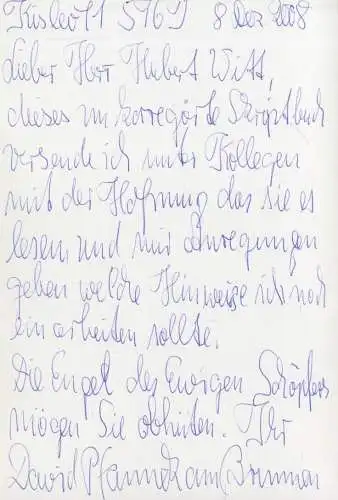 8 Dez 2008
Lieber Herr Hubert Witt,
dieses unkorregörte Skriptbuch
versende ich unter Kollegen
mit der Hofnung das sie es
lesen, und mir Anregungen
geben welche Hinweise ich noch
einarbeiten sollte.
Die Engel des Ewigen Schöpfers
mögen Sie obhüten. Ihr
David Pfannek am Brunnen